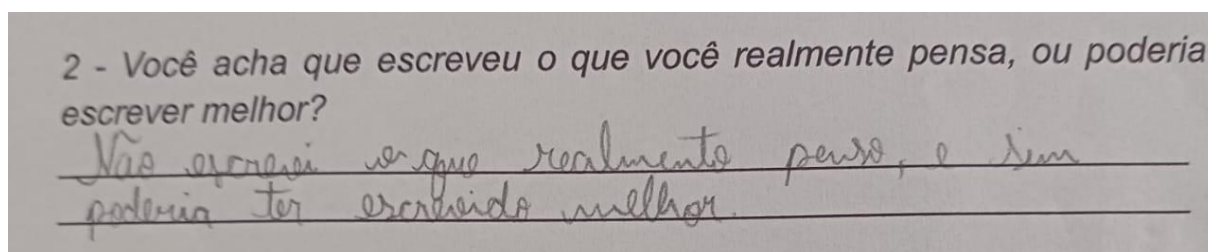 2 - Você acha que escreveu o que você realmente pensa, ou poderia
escrever melhor?
Não escrevi o que realmente penso, e sim
poderia ter escrevido melhor.